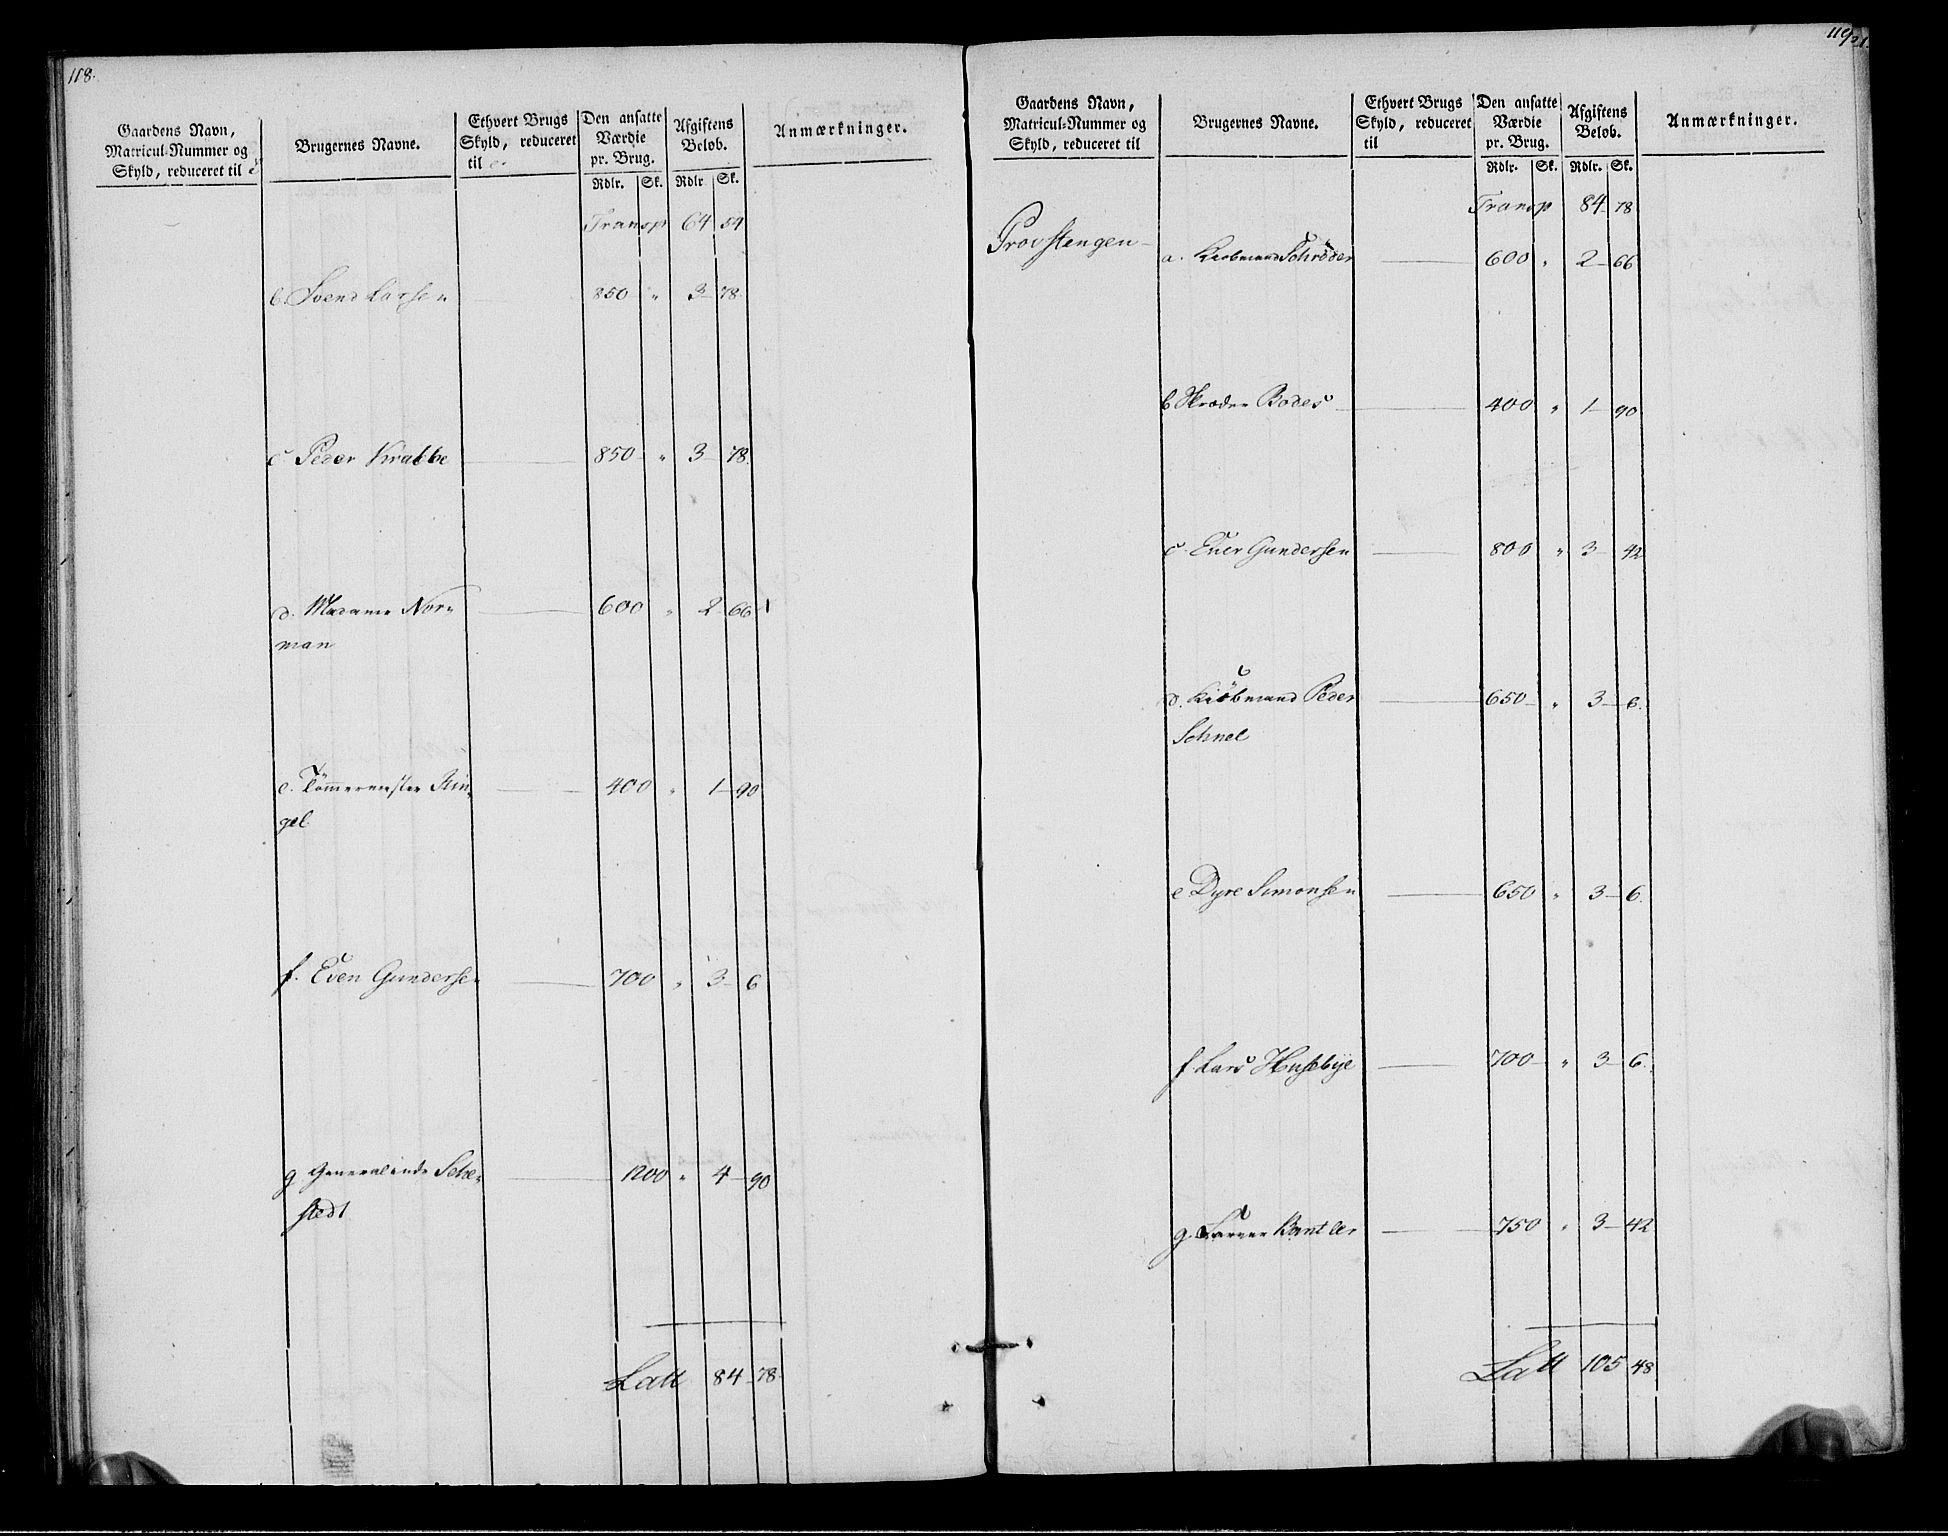 118.
Gaardens Navn, Matricul-Nummer og Skyld, reduceret til
Brugernes Navne.
Ethvert Brugs Skyld, reduceret til
Den ansatte Værdie pr. Brug.
Afgiftens Beløb.
Anmærkninger.
Rdlr. Sk. Rdlr Sk.
Transp 64 54
b. Svend Larsen 850 " 3 78.
c. Peder Krabbe 850 " 3 78.
d. Madame Nor- 600 " 2 66
man
e. Tømmermester Rin- 400 " 1 90
gel
f. Even Gundersen 700 " 3 6
g Generalinde Sche- 1200 " 4 90
stedt
Latt 84 78
119
Gaardens Navn, Matricul-Nummer og Skyld, reduceret til
Brugernes Navne.
Ethvert Brugs Skyld, reduceret til
Den ansatte Værdie pr. Brug.
Afgiftens Beløb.
Anmærkninger.
Rdlr. Sk. Rdlr. Sk.
Transp 84 78
Provstengen a. Kiobmand Schrøder 600 " 2 66
b Skræder Bodes 400 " 1 90
c. Even Gundersen 800 " 3 42
d. Kiøbmand Peder 650 " 3 6.
Schnel
e Dyre Simonsen 650 " 3 6.
f. Lars Husebye 700 " 3 6.
g. Farver Bantler 750 " 3 42
Latt 105 48